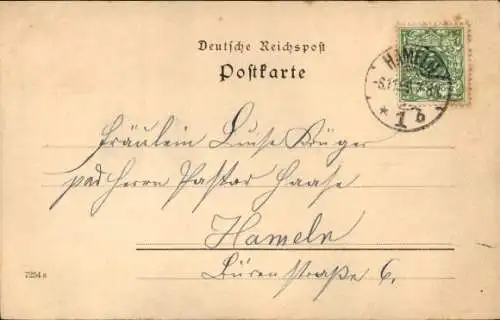 Deutsche Reichspost
Postkarte
HAMELN
* 1 b
Fräulein Luise Krüger
pad Herrn Pastor Haase
Hameln
Bürenstraße 6.
7254 a